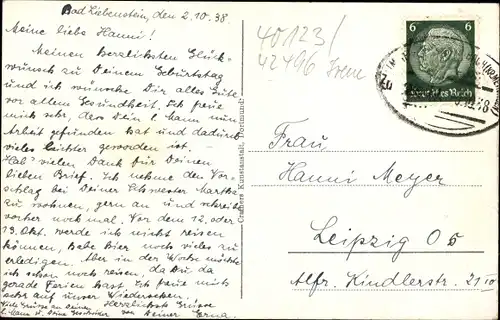 Bad Liebenstein, den 2.10.38.
Meine liebe Hanni!
Meinen herzlichsten Glück-
wunsch zu Deinem Geburtstag
und ich wünsche Dir alles Gute
vor allem Gesundheit. Ich freue
mich sehr, dass Dein l. Mann nun
Arbeit gefunden hat und dadurch
vieles leichter geworden ist. –
Hab' vielen Dank für Deinen
lieben Brief. Ich nehme den Vor-
schlag bei Deiner Schwester Martha
zu wohnen, gern an und schreibe
vorher noch mal. Vor dem 12. oder
13. Okt. werde ich nicht reisen
können, habe hier noch vieles zu
erledigen. Aber in der Woche möchte
ich schon noch reisen, da Du da
gerade Ferien hast. Ich freue mich
sehr auf unser Wiedersehen.
Herzlichste Grüsse
von Deiner Erna.
Viele Grüsse an Deinen
l. Mann u. Deine Geschwister
Cramers Kunstanstalt, Dortmund
40123/
42496
6 6
Deutsches Reich
Frau
Hanni Meyer
Leipzig O 5
Alfr. Kindlerstr. 21